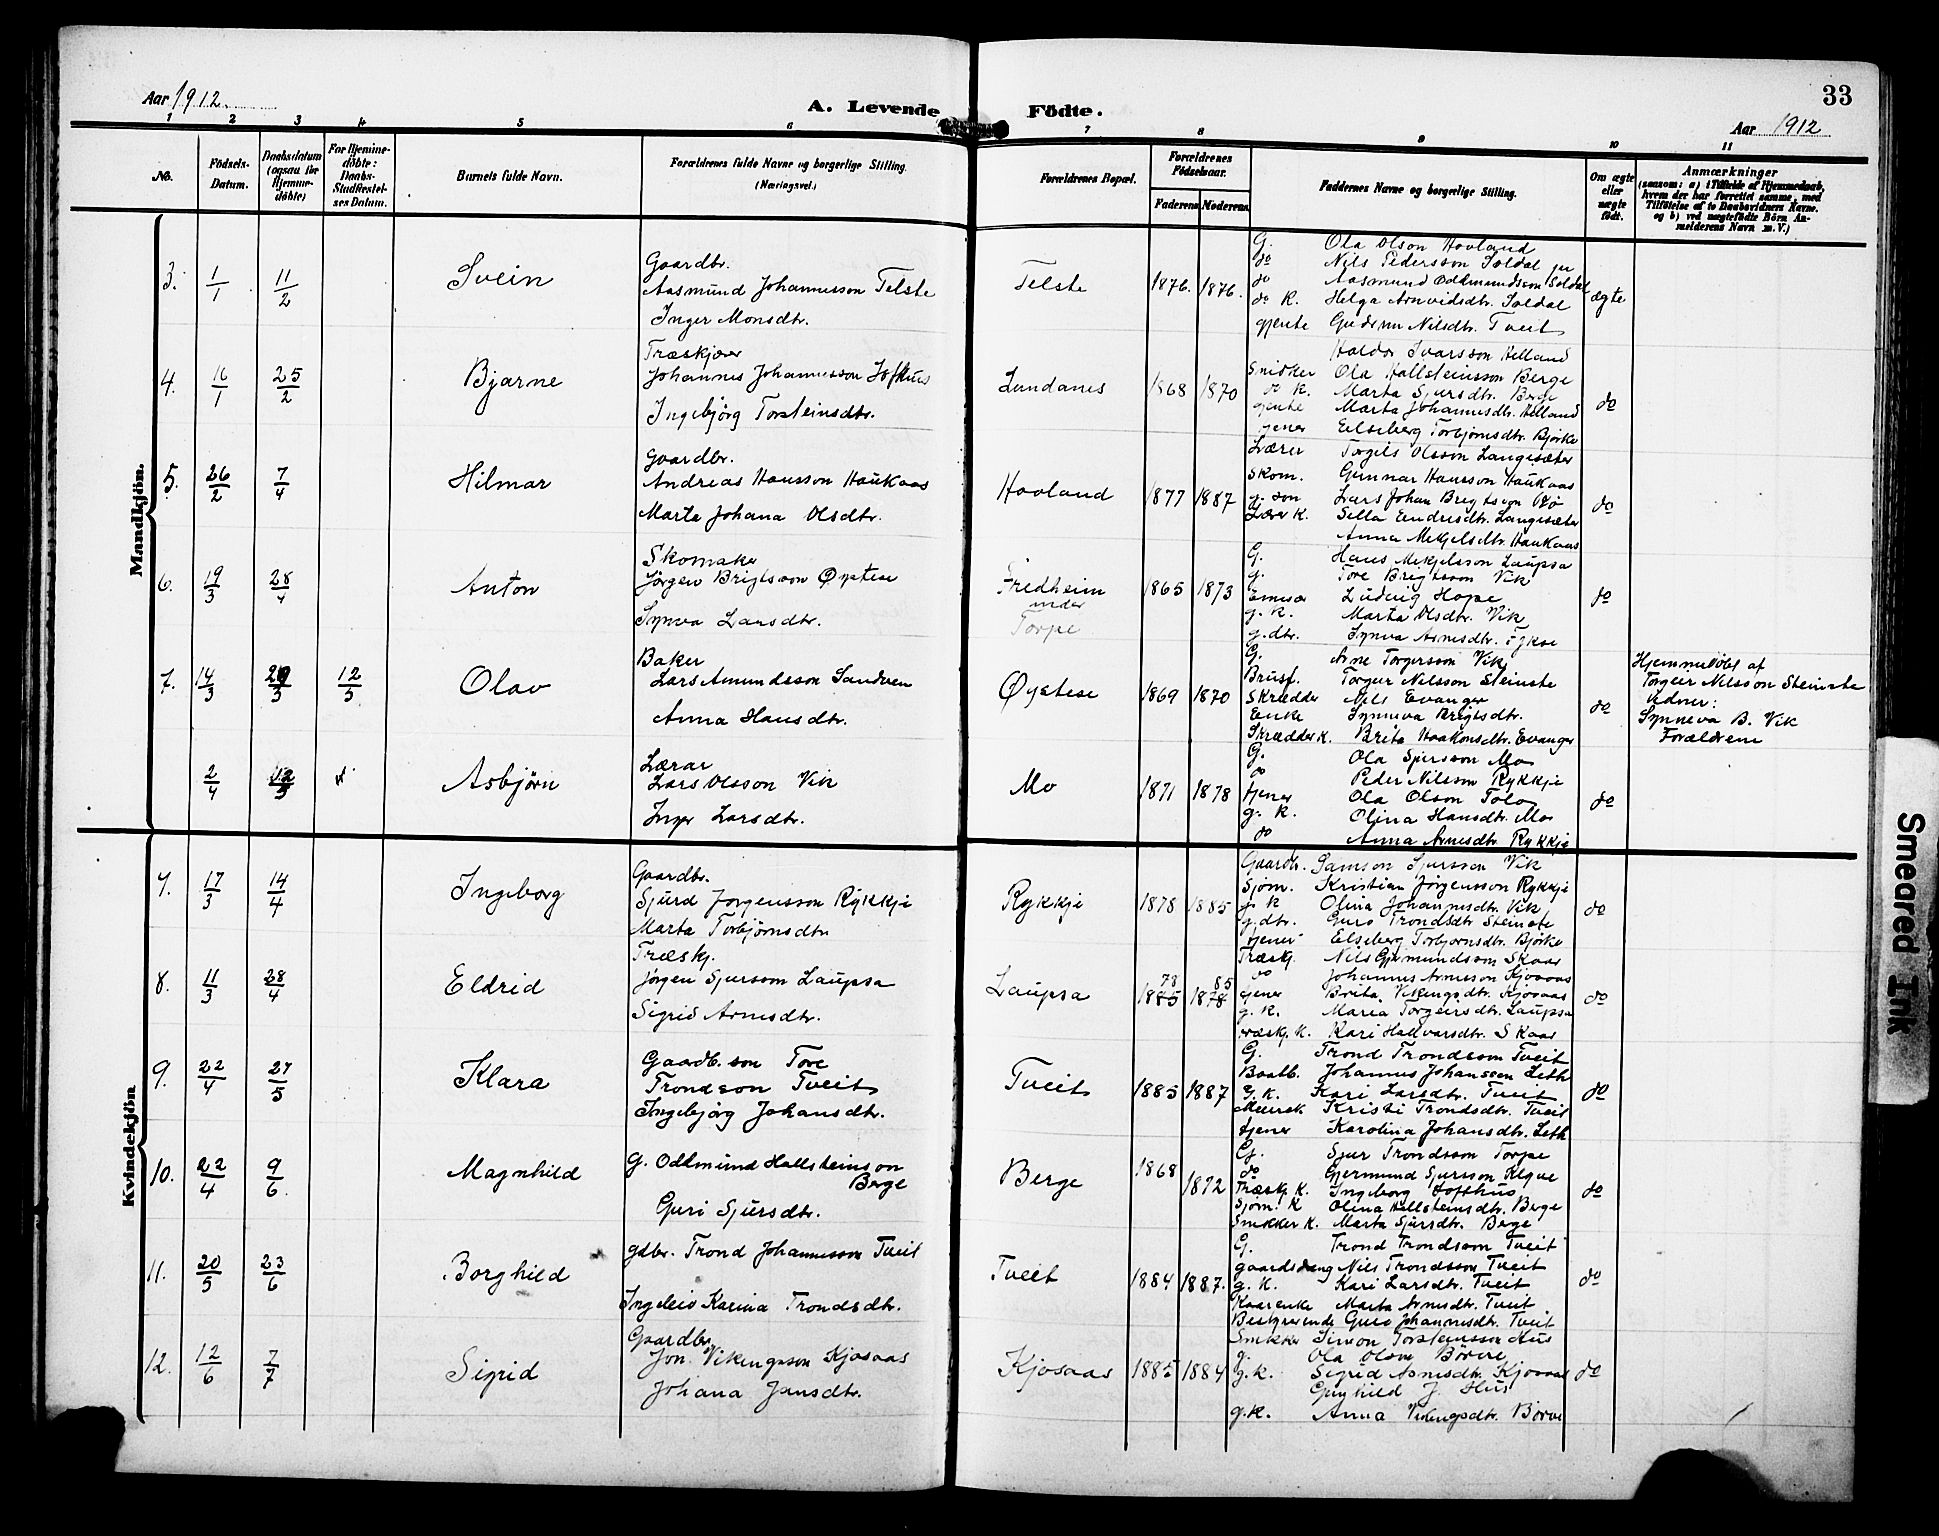 Aar 1912.
A. Levende
Födte.
33
Aar 1912
1 2 3 4 5 6 7 8 9 10 11
No.
Födsels-Datum.
Daabsdatum (ogsaa for Hjemmedöbte)
For Hjemmedöbte: Daabs-Stadfæstelses Datum.
Barnets fulde Navn.
Forældrenes fulde Navne og borgerlige Stilling. (Næringsvei.)
Forældrenes Bopæl.
Forældrenes Födselsaar.
Faderens Moderens
Faddernes Navne og borgerlige Stilling.
Om ægte eller uægte födt.
Anmærkninger
(saasom: a) i Tilfælde af Hjemmedaab, hvem der har forrettet samme, med Tilföielse af to Daabsvidners Navne. og b) ved uægtefödte Börn Anmelderens Navn m. V.)
Mandkjön.
3. 1/1 11/2 Svein
Gaardbr.
Aasmund Johannesson Telste
Inger Monsdtr.
Telste 1876. 1876.
G. Ola Olson Hovland
do Nils Pedersson Soldal
do Aasmund Oddmundson Soldal
do K. Helga Arnvidsdtr. Soldal
gjente Gudrun Nilsdtr. Tveit
ægte
4. 16/1 25/2 Bjarne
Træskjærer
Johannes Johannesson Hofthus
Ingebjörg Torsteinsdtr.
Lundanes 1868 1870
Haldor Ivarsson Helland
Snidker Ola Hallsteinsson Berge
do K. Marta Sjursdtr. Berge
gjente Marta Johannesdtr. Helland
tjener Eilseberg Torbjörnsdtr. Björke
do
5. 26/2 7/4 Hilmar
Gaardbr.
Andreas Hansson Haukaas
Marta Johana Olsdtr.
Hovland 1877 1887
Lærer Torgils Olsson Langesæter
Skom. Gunnar Hansson Haukaas
g. son Lars Johan Brigtson
Lærer K. Sella Eindresdtr. Langesæter
Anna Mekjelsdtr. Haukaas
do
6. 19/3 28/4 Anton
Skomaker
Jørgen Brigtsson Øystese
Synva Larsdtr.
Fredheim
under
Torpe
1865 1873
G. Hans Mekjelsson Laupsa
g. Tore Brigtsson Vik
Ludvig Hope
g. k. Marta Olsdtr. Vik
g. dtr. Synva Arnesdtr. Fykse
do
7. 14/3 12/5 Olav
Baker
Lars Amundsson Sandven
Anna Hansdtr.
Øystese 1869 1870
G. Arne Torgersson Vik
Brusf. Torgeir Nilsson Steinste
Skrædder Nils Evanger
Enke Synneva Brigtsdtr.
Skrædder K. Brita Haakonsdtr. Evanger
do
Hjemmedöbt af
Torgeir Nilsson Steinste
Vidner:
Synneva B. Vik
Forældrene
2/4 12/5 Asbjørn
Lærar
Lars Olsson Vik
Inger Larsdtr.
Mo 1871 1878
G. Ola Sjursson Mo
do Peder Nilsson Rykkje
tjener Ola Olson Tolo
g. K. Olina Hansdtr. Mo
do Anna Arnesdtr. Rykkje
do
Kvindekjön
7. 17/3 14/4 Ingeborg
Gaardbr.
Sjurd Jorgensson Rykkje
Marta Torbjörnsdtr
Rykkje 1878 1885
Gaardb. Samson Sjursson Vik
Sjöm. Kristian Jørgensson Rykkje
g. K Olina Johannesdtr. Vik
g. dtr. Guro Trondsdtr Steinste
tjener Eilseberg Torbjornsdtr. Björke
do
8. 11/3 28/4 Eldrid
Træskj.
Jørgen Sjursson Laupsa
Sigrid Arnesdtr.
Laupsa 78 1885 85 1878
Træskj. Nils Gjermundsson Skaar
do Johannes Arnesson Kjosaas
tjener Brita Vikingsdtr. Kjosaas
g. K. Maria Torgeirsdtr. Laupsa
træskj. K. Kari Hallvarsdtr. Skaar
do
9. 22/4 27/5 Klara
Gaardb. son Tore
Trondson Tveit
Ingebjörg Johansdtr.
Tveit 1885 1887
G. Trond Trondsson Tveit
Baatb. Johannes Johansson Leth
G. K. Kari Larsdtr. Tveit
Kristi Trondsdtr. Tveit
tjener Karolina Johansdtr. Leth
do
10. 22/4 9/6 Magnhild
G. Oddmund Hallsteinson
Berge
Guri Sjursdtr.
Berge 1868 1872
G. Sjur Trondson Torpe
do Gjermund Sjursson
Træskj. K. Ingeborg Hofthus
Sjöm. K Olina Hallsteinsdtr. Berge
Snikker K. Marta Sjursdtr. Berge
do
11. 20/5 23/6 Borghild
gdbr. Trond Johannesson Tveit
Ingeleiv Karina Trondsdtr.
Tveit 1884 1887.
G. Trond Trondsson Tveit
gaardsdreng Nils Trondsson Tveit
g. K. Kari Larsdtr. Tveit
Kaarenke Marta Arnesdtr. Tveit
Bestyrerinde Guro Johannesdtr. Tveit
do
12. 12/6 7/7 Sigrid
Gaardbr.
Jon Vikingsson Kjosaas
Johana Jansdtr.
Kjosaas 1885 1884
Snikker Simon Torsteinsson Hus
g. Ola Olsen Börve
g. k. Sigrid Arnesdtr. Kjosaas
Gunhild J. Hus
g. K. Anna Vikingsdtr. Börve
do
Smeared Ink